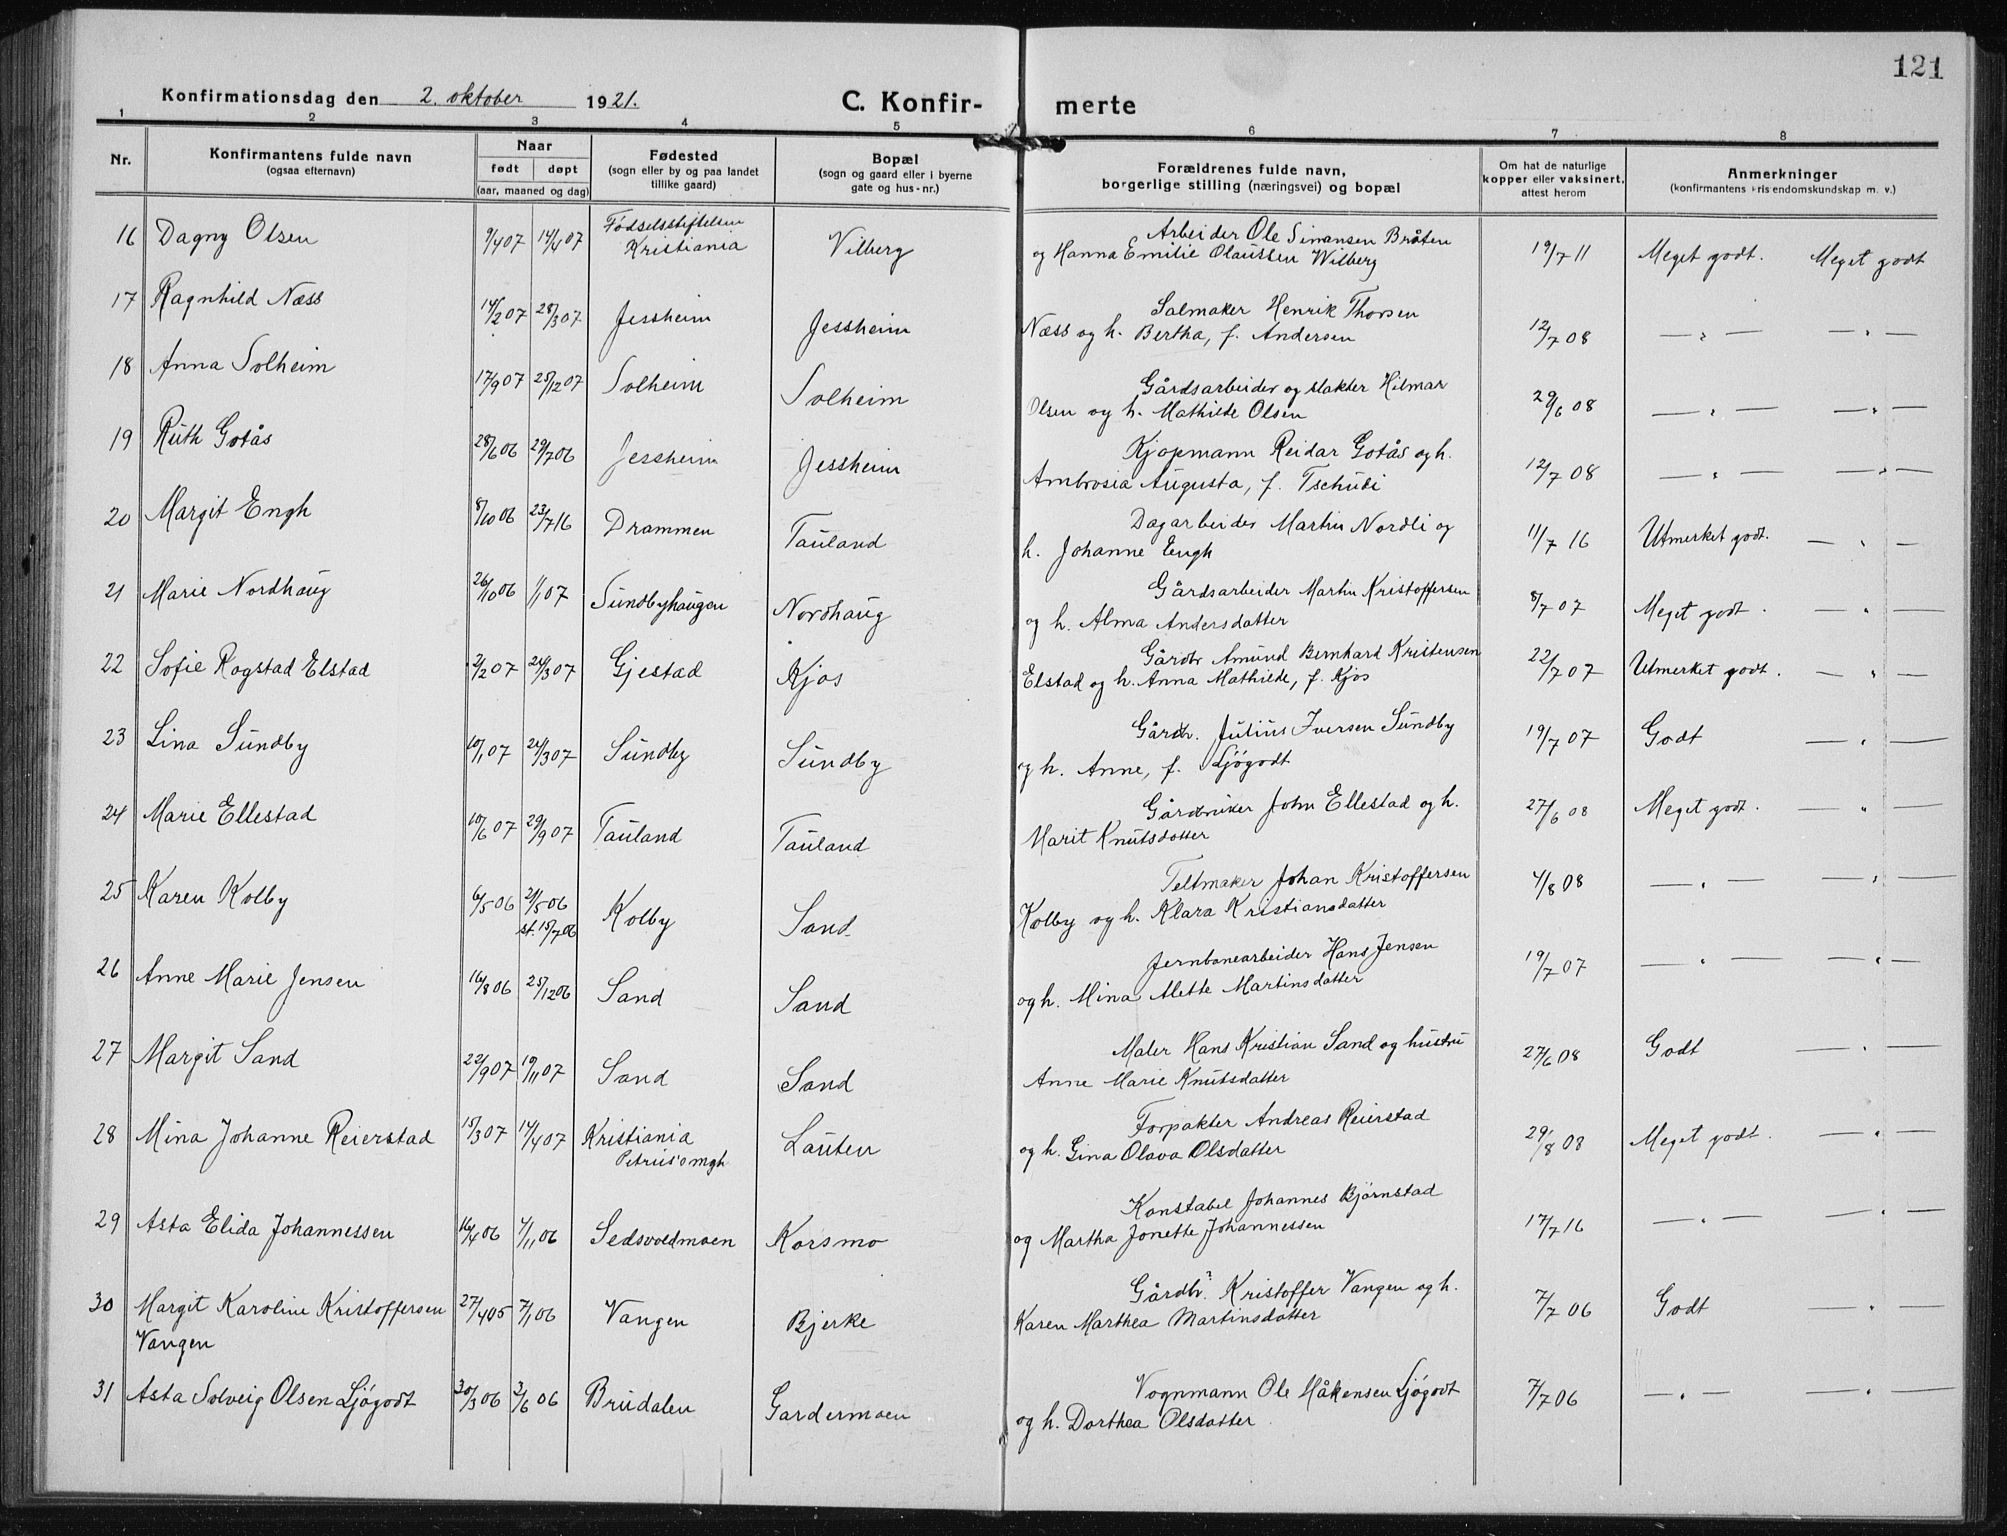 121
Konfirmationsdag den 2. oktober 1921. C. Konfir- merte
1 2 3 4 5 6 7 8
Nr. Konfirmantens fulde navn (ogsaa efternavn) Naar født døpt (aar, maaned og dag) Fødested (sogn eller by og paa landet tillike gaard) Bopæl (sogn og gaard eller i byerne gate og hus-nr.) Forældrenes fulde navn, borgerlige stilling (næringsvei) og bopæl Om hat de naturlige kopper eller vaksinert, attest herom Anmerkninger (konfirmantens kristendomskundskap m. v.)
16 Dagny Olsen 9/4 07 14/4 07 Fødselsstiftelsen Kristiania Vilberg Arbeider Ole Simensen Bråten
og Hanna Emilie Olaussen Wilberg 19/7 11 Meget godt. Meget godt
17 Ragnhild Næss 14/2 07 28/3 07 Jessheim Jessheim Salmaker Henrik Thorsen
Næss og h. Bertha, f. Andersen 12/7 08 — " — — " —
18 Anna Solheim 17/9 07 25/12 07 Solheim Solheim Gårdsarbeider og slakter Hilmar
Olsen og h. Mathilde Olsen 29/6 08 — " — — " —
19 Ruth Gotås 28/6 06 29/7 06 Jessheim Jessheim Kjøpmann Reidar Gotås og h.
Ambrosia Augusta, f. Tschudi 12/7 08 — " — — " —
20 Margit Engh 8/10 06 23/7 16 Drammen Tauland Dagarbeider Martin Nordli og
h. Johanne Engh 11/7 16 Utmerket godt. — " —
21 Marie Nordhaug 26/10 06 1/1 07 Sundbyhaugen Nordhaug Gårdsarbeider Martin Kristoffersen
og h. Alma Andersdatter 8/7 07 Meget godt. — " —
22 Sofie Rogstad Elstad 2/2 07 24/3 07 Gjestad Kjos Gårdbr Amund Bernhard Kristensen
Elstad og h. Anna Mathilde, f. Kjos 22/7 07 Utmerket godt. — " —
23 Lina Sundby 10/1 07 24/3 07 Sundby Sundby Gårdbr. Julius Iversen Sundby
og h. Anne, f. Ljøgodt 19/7 07 Godt — " —
24 Marie Ellestad 10/6 07 29/9 07 Tauland Tauland Gårdbruker John Ellestad og h.
Marit Knutsdatter 27/6 08 Meget godt. — " —
25 Karen Kolby 6/5 06 21/5 06 st. 15/7 06 Kolby Sand Teltmaker Johan Kristoffersen
Kolby og h. Klara Kristiansdatter 4/8 08 — " — — " —
26 Anne Marie Jensen 16/8 06 25/12 06 Sand Sand Jernbanearbeider Hans Jensen
og h. Mina Alette Martinsdatter 19/7 07 — " — — " —
27 Margit Sand 22/9 07 10/11 07 Sand Sand Maler Hans Kristian Sand og hustru
Anne Marie Knutsdatter 27/6 08 Godt — " —
28 Mina Johanne Reierstad 15/3 07 14/4 07 Kristiania Petrus' mgh Lauten Forpakter Andreas Reierstad
og h. Gina Olava Olsdatter 29/8 08 Meget godt. — " —
29 Asta Elida Johannessen 16/4 06 4/11 06 Sedsvoldmoen Korsmo Konstabel Johannes Bjørnstad
og Martha Jonette Johannessen 17/7 16 — " — — " —
30 Margit Karoline Kristoffersen 27/4 05 7/1 06 Vangen Bjerke Gårdbr. Kristoffer Vangen og h.
Vangen Karen Marthea Martinsdatter 7/7 06 Godt — " —
31 Asta Solveig Olsen Ljøgodt 30/3 06 3/6 06 Brudalen Gardermoen Vognmann Ole Håkensen Ljøgodt
og h. Dorthea Olsdatter 7/7 06 — " — — " —